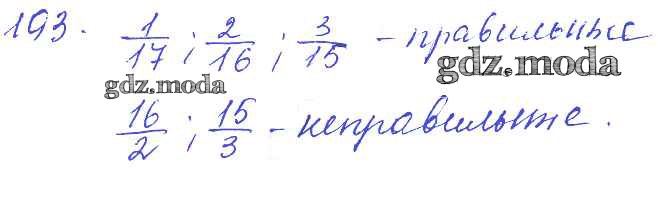 193. 1/17 ; 2/16 ; 3/15 - правильные
gdz.moda
gdz.moda
16/2 ; 15/3 - неправильные.